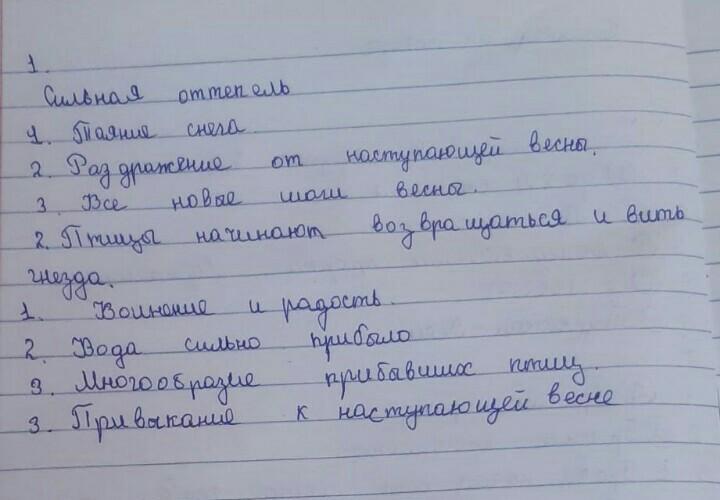 1.
Сильная оттепель
1. Таяние снега
2. Раздражение от наступающей весны.
3. Все новые шаги весны.
2. Птицы начинают возвращаться и вить
гнезда.
1. Волнение и радость.
2. Вода сильно прибыло
3. Многообразие прибавших птиц.
3. Привыкание к наступающей весне